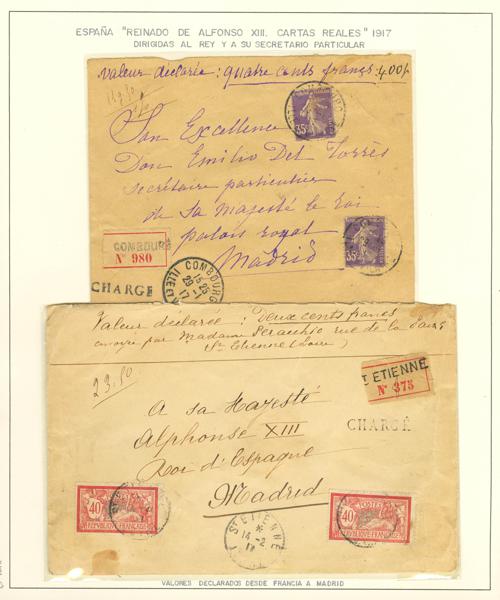 ESPAÑA "REINADO DE ALFONSO XIII. CARTAS REALES" 1917
DIRIGIDAS AL REY Y A SU SECRETARIO PARTICULAR
Valeur déclarée : quatre cents francs : 400f
Son Excellence
Don Emilio Del Torrès
secrétaire particulier
de Sa Majesté le Roi
palais royal
Madrid
35c
35c
COMBOURG
N° 980
CHARGÉ
COMBOURG
15 25
29 -1
17
ILLE ET
Valeur déclarée : Deux cents francs
envoyé par Madame rue de la
St Etienne (Loire)
23,80
ST ETIENNE
N° 375
CHARGÉ
A sa Majesté
Alphonse XIII
Roi d'Espagne
Madrid
40c
REPUBLIQUE FRANÇAISE
POSTES
40c
REPUBLIQUE FRANÇAISE
ST ETIENNE
14 -2
17
VALORES DECLARADOS DESDE FRANCIA A MADRID